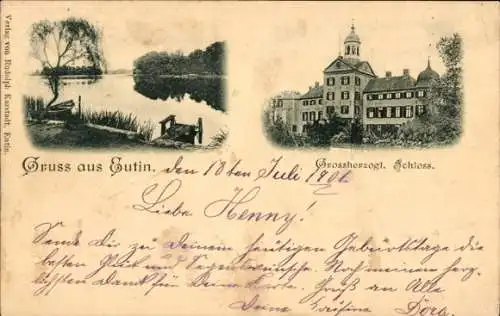 Verlag von Rudolph Karstadt, Eutin.
Gruss aus Eutin. den 10ten Juli 1901
Grossherzogl. Schloss.
Liebe Henny!
Sende Dir zu Deinem heutigen Geburtstage die
besten Glück und Segenswünsche. Noch meinen herz-
lichsten Dank für Deine Karte. Gruß an Alle
Deine Cousine Dora.